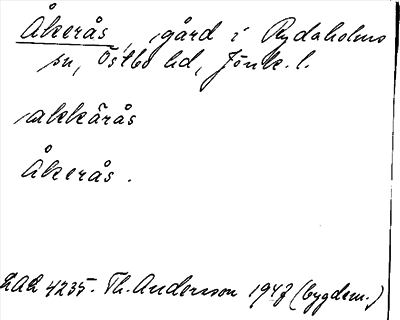 Åkerås, gård i Rydaholms
sn, Östbo hd, Jönk. l.
akkårås
Åkerås.
LAL 4235. Th. Andersson 1947 (bygdem.)